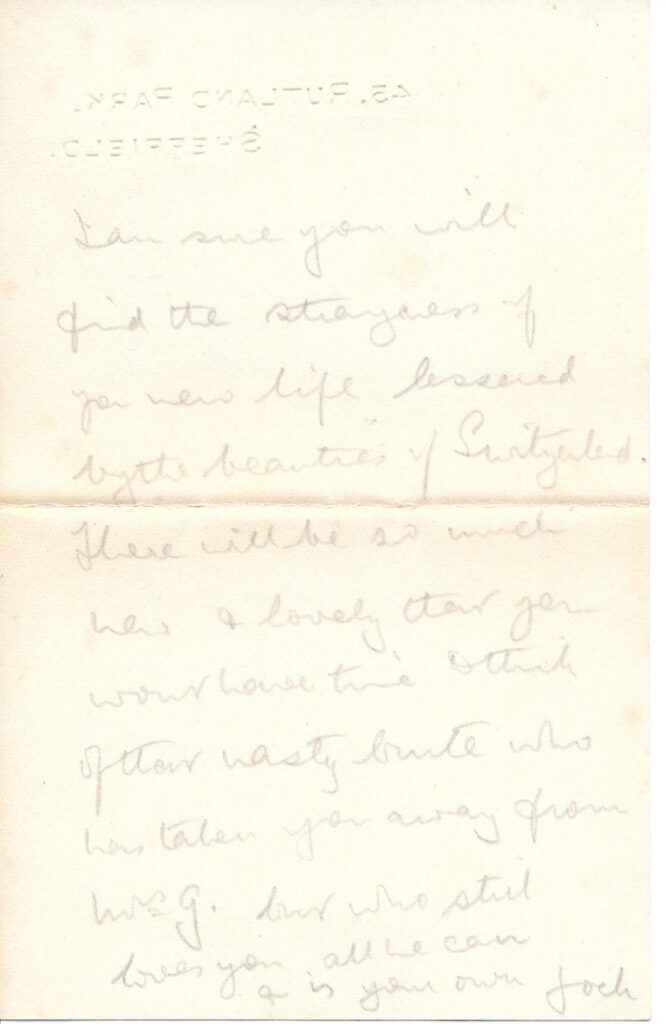 45, RUTLAND PARK,
SHEFFIELD.
I am sure you will
find the strangeness of
your new life lessened
by the "beauties" of Switzerland.
There will be so much
new & lovely that you
wont have time to think
of that nasty brute who
has taken you away from
Mrs G. but who still
loves you all he can
& is your own Jock